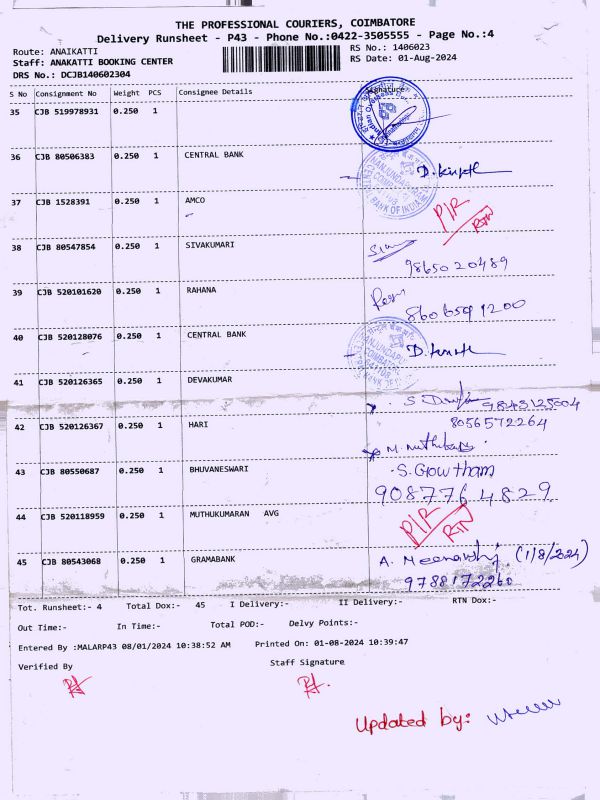 THE PROFESSIONAL COURIERS, COIMBATORE
Delivery Runsheet - P43 - Phone No.:0422-3505555 - Page No.:4
Route: ANAIKATTI
RS No.: 1406023
Staff: ANAKATTI BOOKING CENTER
RS Date: 01-Aug-2024
DRS No.: DCJB140602304
S No Consignment No Weight PCS Consignee Details Signature
35 CJB 519978931 0.250 1
36 CJB 80506383 0.250 1 CENTRAL BANK
37 CJB 1528391 0.250 1 AMCO P/R RTN
38 CJB 80547854 0.250 1 SIVAKUMARI
9865020489
39 CJB 520101620 0.250 1 RAHANA
8606591200
40 CJB 520128076 0.250 1 CENTRAL BANK
41 CJB 520126365 0.250 1 DEVAKUMAR
9843125004
42 CJB 520126367 0.250 1 HARI 8056572264
43 CJB 80550687 0.250 1 BHUVANESWARI S. Gowtham
9087764829
44 CJB 520118959 0.250 1 MUTHUKUMARAN AVG P/R RTN
45 CJB 80543068 0.250 1 GRAMABANK A. Meenakshi (1/8/2024)
9788172260
Tot. Runsheet:- 4 Total Dox:- 45 I Delivery:- II Delivery:- RTN Dox:-
Out Time:- In Time:- Total POD:- Delvy Points:-
Entered By :MALARP43 08/01/2024 10:38:52 AM Printed On: 01-08-2024 10:39:47
Verified By Staff Signature
Updated by: